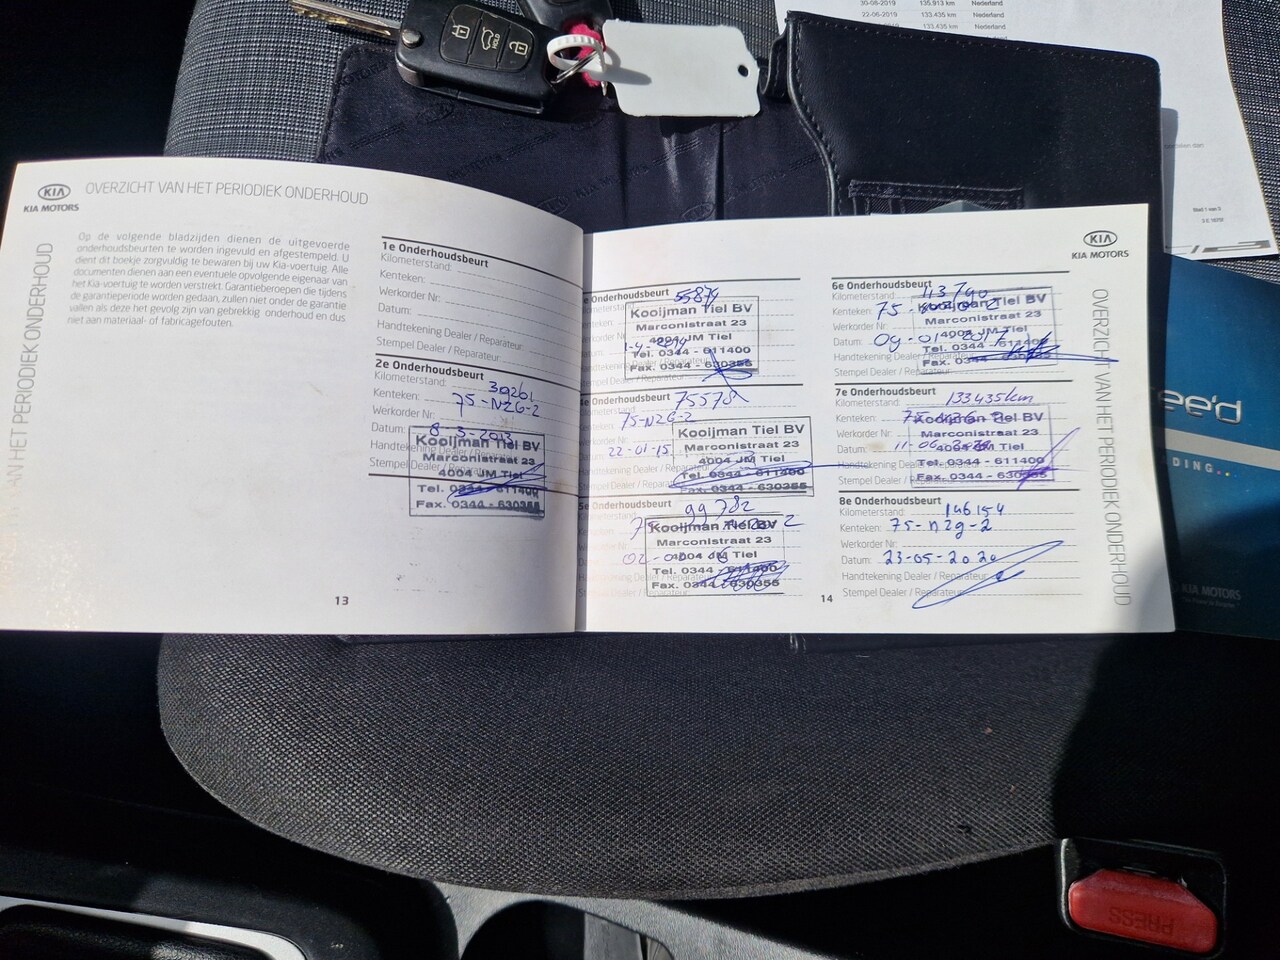 30-08-2019 135.913 km Nederland
22-06-2019 133.435 km Nederland
133.435 km Nederland
HOLD
KIA
KIA MOTORS
OVERZICHT VAN HET PERIODIEK ONDERHOUD
Op de volgende bladzijden dienen de uitgevoerde
onderhoudsbeurten te worden ingevuld en afgestempeld. U
dient dit boekje zorgvuldig te bewaren bij uw Kia-voertuig. Alle
documenten dienen aan een eventuele opvolgende eigenaar van
het Kia-voertuig te worden verstrekt. Garantieberoepen die tijdens
de garantieperiode worden gedaan, zullen niet onder de garantie
vallen als deze het gevolg zijn van gebrekkig onderhoud en dus
niet aan materiaal- of fabricagefouten.
1e Onderhoudsbeurt
Kilometerstand:
Kenteken:
Werkorder Nr:
Datum:
Handtekening Dealer / Reparateur:
Stempel Dealer / Reparateur:
2e Onderhoudsbeurt
Kilometerstand: 39261
Kenteken: 75-NZG-2
Werkorder Nr:
Datum: 8-3-2013
Kooijman Tiel BV
Marconistraat 23
4004 JM Tiel
Tel. 0344 - 611400
Fax. 0344 - 630355
13
e Onderhoudsbeurt
55879
Kooijman Tiel BV
Marconistraat 23
4004 JM Tiel
Tel. 0344 - 611400
Fax. 0344 - 630355
Stempel Dealer / Reparateur:
e Onderhoudsbeurt
75578
75-NZG-2
22-01-15
Kooijman Tiel BV
Marconistraat 23
4004 JM Tiel
Tel. 0344 - 611400
Fax. 0344 - 630355
5e Onderhoudsbeurt
99782
Kooijman Tiel BV
Marconistraat 23
4004 JM Tiel
Tel. 0344 - 611400
Fax. 0344 - 630355
KIA
KIA MOTORS
6e Onderhoudsbeurt
Kilometerstand: 113790
Kenteken: 75-
Werkorder Nr:
Datum: 09-01-
Handtekening Dealer / Reparateur:
Stempel Dealer / Reparateur:
Kooijman Tiel BV
Marconistraat 23
4004 JM Tiel
Tel. 0344 - 611400
Fax. 0344 - 630355
7e Onderhoudsbeurt
Kilometerstand: 133435km
Kenteken: 75
Werkorder Nr:
Datum: 11-06-
Handtekening Dealer / Reparateur:
Stempel Dealer / Reparateur:
Kooijman Tiel BV
Marconistraat 23
4004 JM Tiel
Tel. 0344 - 611400
Fax. 0344 - 630355
8e Onderhoudsbeurt
Kilometerstand: 146154
Kenteken: 75-nzg-2
Werkorder Nr:
Datum: 23-05-2020
Handtekening Dealer / Reparateur:
Stempel Dealer / Reparateur:
14
OVERZICHT VAN HET PERIODIEK ONDERHOUD
VAN HET PERIODIEK ONDERHOUD
ee'd
DING...
KIA MOTORS
PRESS